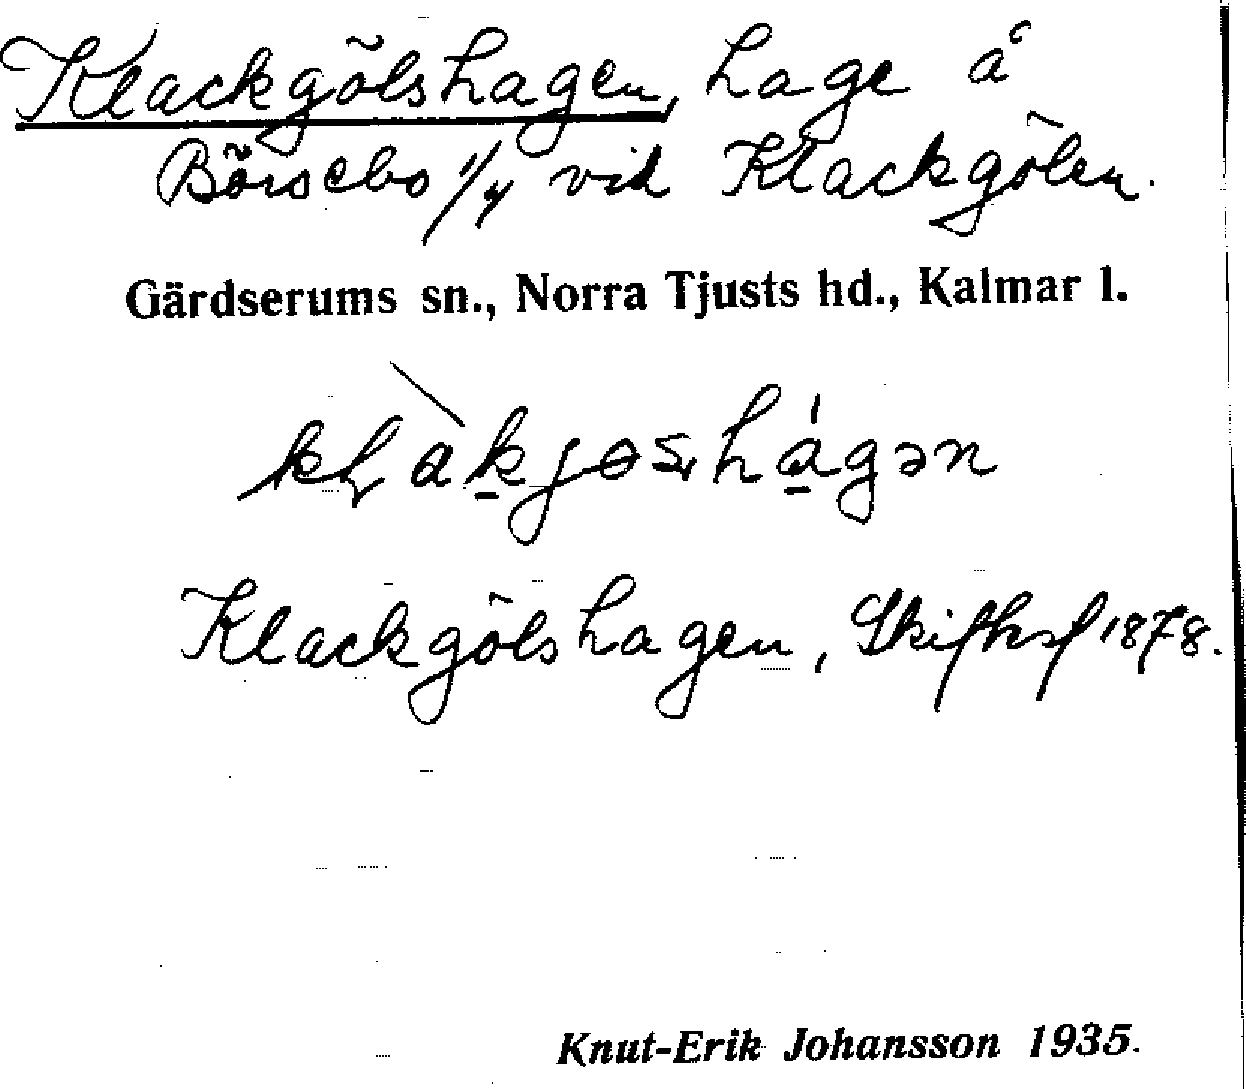 Klackgölshagen, hage å
Börsebo 1/4 vid Klackgölen.
Gärdserums sn., Norra Tjusts hd., Kalmar l.
Klackgölshagen, Skifteshsf 1878.
Knut-Erik Johansson 1935.